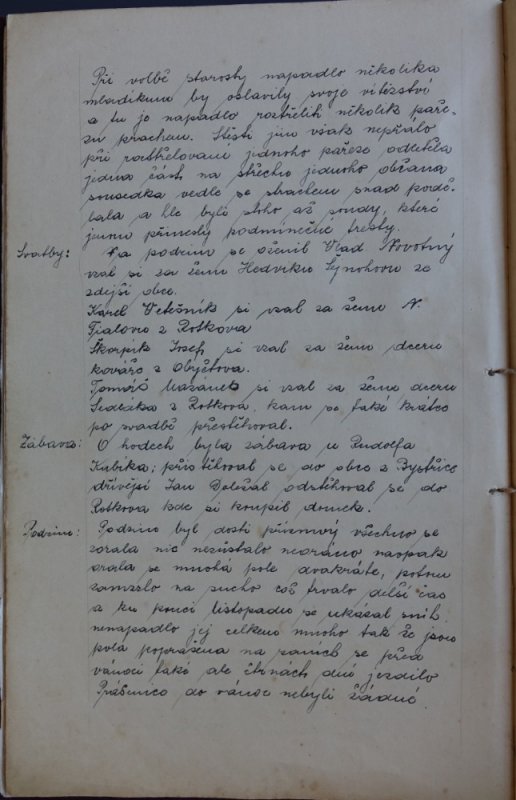 Při volbě starosty napadlo několika
mladíkum by oslavily svoje vítězství
a tu je napadlo rozstřelit několik paře-
zu prachem. Štěstí jim však nepřálo
při rozstřelovani jednoho pařezu odletěla
jedna část na střechu jednoho občana
sousedka vedle se strachem snad podě-
lala a hle byli z toho až soudy, které
jemu přinesly podmínečné tresty.
Svatby: Na podzim se oženil Vlad Novotný
vzal si za ženu Hedviku Šejnohovu ze
zdejší obce.
Karel Vetešník si vzal za ženu N.
Fialovu z Rotkova
Škorpík Josef si vzal za ženu dceru
kováře z Obyčtova.
Tomáš Mazanec si vzal za ženu dceru
Sedláka z Rotkova, kam se také krátce
po svadbě přestěhoval.
Zábava: O hodech byla zábava u Rudolfa
Kubíka; přistěhoval se do obce z Bystřice
dřívější Jan Doležal odstěhoval se do
Rotkova kde si koupil domek.
Podzim: Podzim byl dosti příznivý všechno se
zoralo nic nezůstalo neoráno naopak
orala se mnohá pole dvakráte, potom
zamrzlo na sucho což trvalo delší čas
a ku konci listopadu se ukázal sníh,
nenapadlo jej celkem mnoho tak že jsou
pola poprášena na saních se před
vánoci také ale čtrnáct dnů jezdilo
Prášenice do vánoc nebyli žádné.